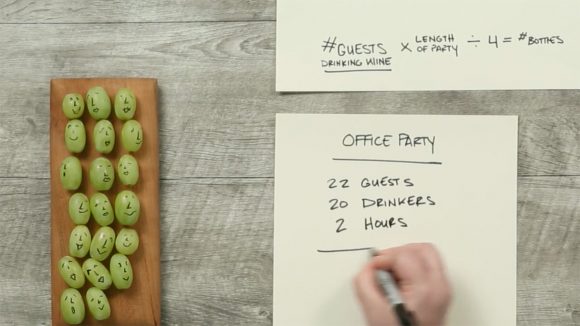 #GUESTS × LENGTH ÷ 4 = #BOTTLES
DRINKING WINE OF PARTY
OFFICE PARTY
22 GUESTS
20 DRINKERS
2 HOURS